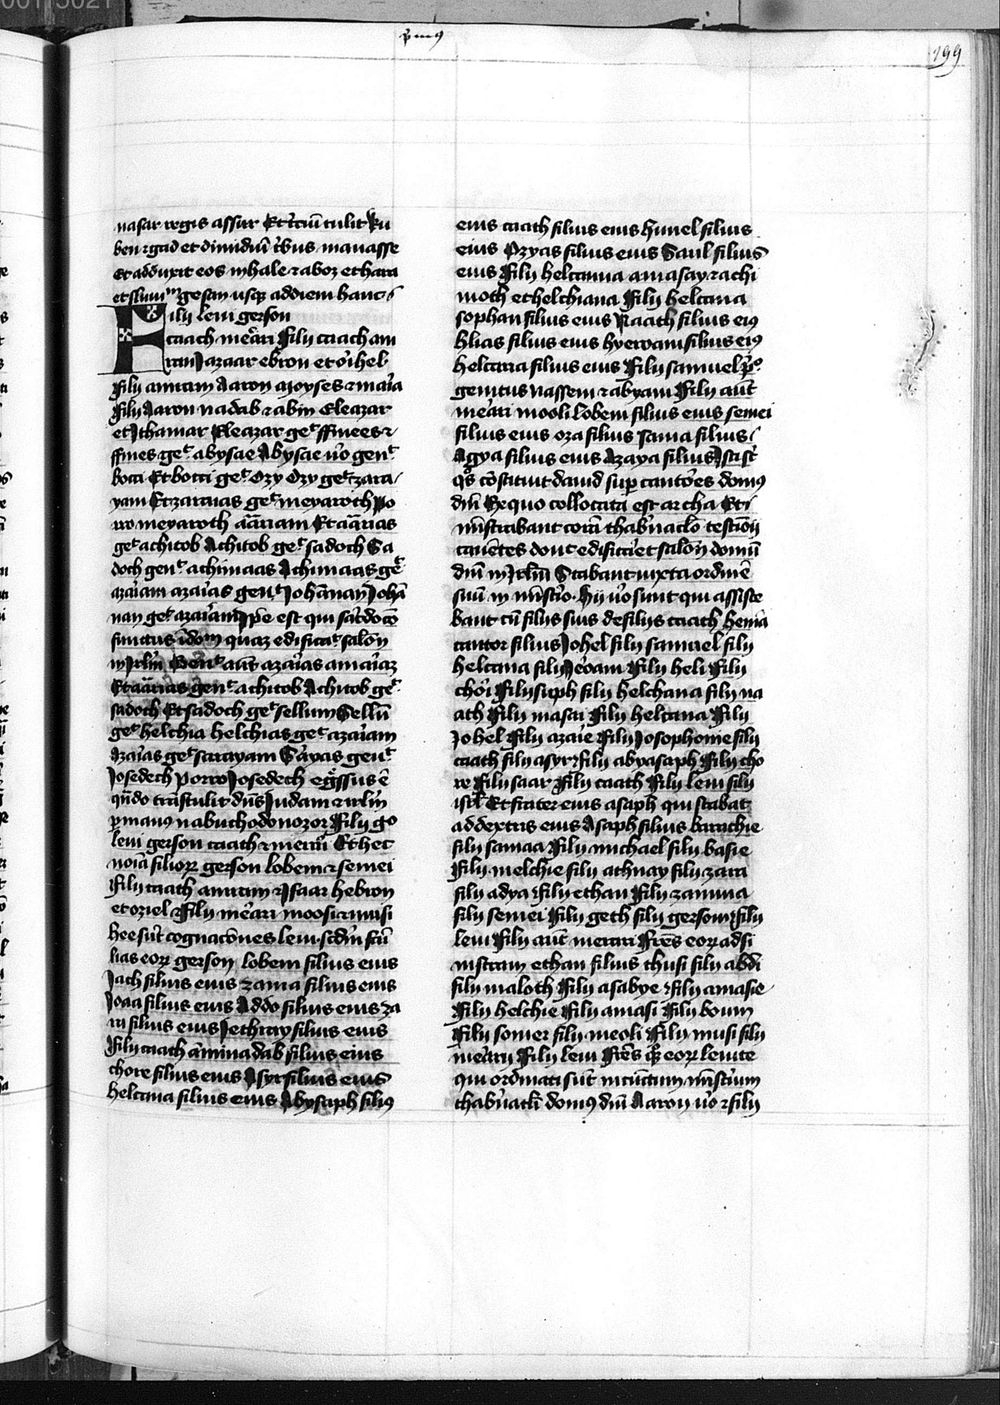 primus
199
nasar regis assur Et t̄ciū tulit Ru
ben ⁊ gad et dimidiū t̓bus manasse
et adduxit eos in hale ⁊ aboz et hara
et fluuiū gesan usq̄ ad diem hanc
Filij leui gerson
caath merari Filij caath am
ram Jazaar ebron et ozihel
Filij amram Aaron moyses ⁊ maria
Filij Aaron nadab ⁊ abiu Eleazar
et Jthamar Eleazar geᵗ ffinees ⁊
ffines geᵗ abysae Abysae ūo genᵗ
bocci Et bocci geᵗ Ozy Ozy geᵗ zara
yam Et zaraias geᵗ meyaroth Po
rro meyaroth amariam Et amarias
geᵗ achitob Achitob geᵗ sadoch Sa
doch genᵗ achimaas Achimaas geᵗ
azariam azarias genᵗ Johannan Joha
nan geᵗ azariam Jpe est qui sacerdocō
functus ī domo quaz edificaᵗ salon
in irlm̄ Genᵗ aut azarias amariaz
Et amarias genᵗ achitob Achitob geᵗ
sadoch Et sadoch geᵗ sellum Sellū
geᵗ helchia helchias geᵗ azariam
Azarias geᵗ sarayam Sarayas genᵗ
Josedech porro Josedech egressus ē
qn̄do trāstulit dn̄s Judam et irlm̄
p manus nabuchodonozor Filij go
leui gerson caath ⁊ merari Et hec
noīa filiorꝫ gerson lobem ⁊ semei
Filij caath amram ⁊ Jsaar hebron
et oziel Filij merari moosi ⁊ musi
hee sūt cognacōnes leui scd̄m fāi
lias eorꝫ gerson lobem filius eius
Jach filius eius zama filius eius
Joaa filius eius Addo filius eius za
ra filius eius Jethray filius eius
Filij caath aminadab filius eius
chore filius eius Asyr filius eius
helcana filius eius Abysaph filius
eius caath filius eius huriel filius
eius Ozyas filius eius Saul filius
eius Filij helcana amasay ⁊ achi
moth et helchana Filij helcana
sophan filius eius Naath filius eius
hlias filius eius hyeroam filius eius
helcana filius eius Filij samuel p̄o
genitus vassem ⁊ abyam Filij aut
merari mooli lobem filius eius semei
filius eius oza filius sama filius
Agya filius eius Azaya filius Jsti sūt
qos cōstituit dauid sup cantores domus
dn̄i Ex quo collocata est archa Et
mīstrabant corā thabnaclō testiōij
canētes donc edificaret salōn domū
dn̄i in Jrlm̄ Stabant iuxta ordinē
suū in mīstio. Hij ūo sunt qui assiste
bant cū filijs suis de filijs caath hema
cantor filius Johel filij samuel filij
helcana filij Jeroam Filij heli Filij
chori Filij suph filij helchana filij na
ath Filij masai Filij helcana Filij
Johel Filij azarie Filij Josophonie filij
caath filij asyr Filij abyasaph Filij cho
re Filij saar Filij caath Filij leui filij
isrl Et frater eius asaph qui stabat
ad dextris eius Asaph filius barachie
filij samaa Filij michael filij basie
Filij melchie filij athnay filij zara
filij adya Filij ethan Filij zamma
filij semei Filij geth filij gersom Filij
leui Filij aut merari Frēs eorꝫ ad si
nistram ethan filius thusi filij abdi
filij maloth Filij asabye Filij amasie
Filij helchie Filij amasi Filij boum
Filij somer filij meoli Filij musi filij
merary Filij leui Frēs qꝫ eorꝫ leuite
qui ordinati sūt in cunctum mīstium
thabnacli domus dn̄i Aaron ūo ⁊ filij